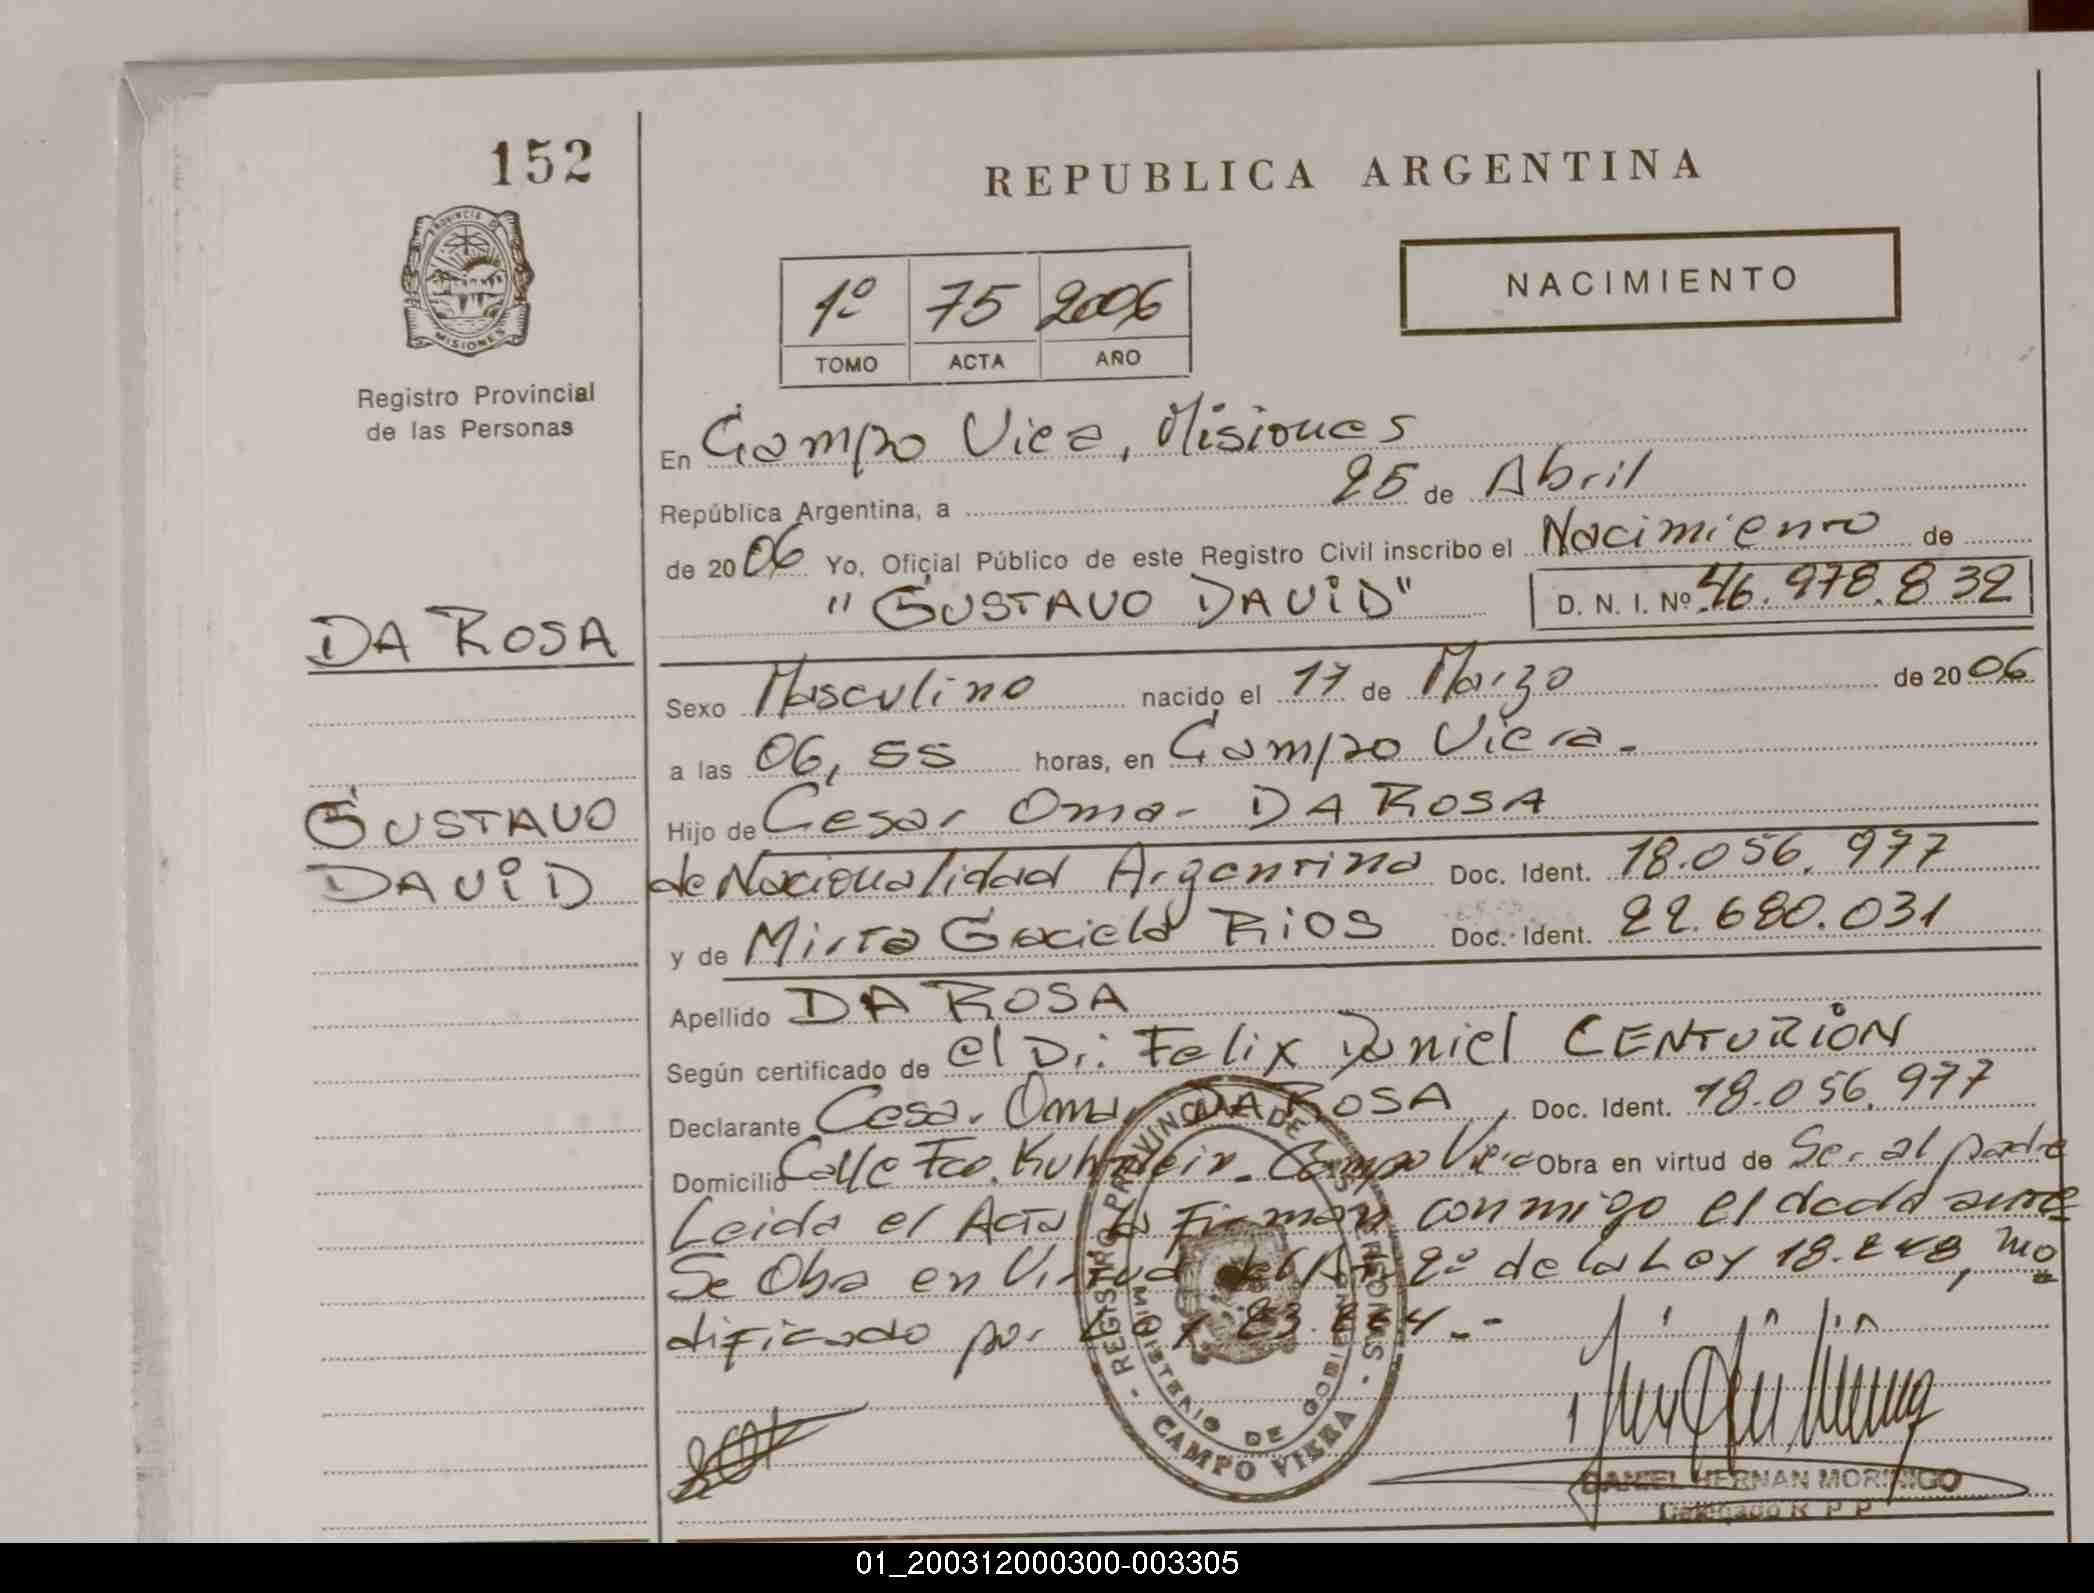 152
REPUBLICA ARGENTINA
PROVINCIA DE
MISIONES
Registro Provincial
de las Personas
1º 75 2006
TOMO ACTA AÑO
NACIMIENTO
En Campo Viera, Misiones
República Argentina, a 25 de Abril
de 2006 Yo, Oficial Público de este Registro Civil inscribo el Nacimiento de
"GUSTAVO DAVID" D. N. I. Nº 46.978.832
DA ROSA
Sexo Masculino nacido el 17 de Marzo de 2006
a las 06,55 horas, en Campo Viera.
GUSTAVO
DAVID
Hijo de Cesar Omar DA ROSA
de Nacionalidad Argentina Doc. Ident. 18.056.977
y de Mirta Graciela RIOS Doc. Ident. 22.680.031
Apellido DA ROSA
Según certificado de el Dr: Felix Daniel CENTURION
Declarante Cesar Omar DA ROSA, Doc. Ident. 18.056.977
Domicilio Calle Fco. Campo Viera Obra en virtud de Ser al padre
Leida el Acta la Firman conmigo el
Se Obra en Virtud del Art 2º de la Ley 18.248, mo
dificado por Ley 23.264.-
REGISTRO PROVINCIAL DE LAS PERSONAS
MINISTERIO DE GOBIERNO
CAMPO VIERA
DANIEL HERNAN MORINIGO
Delegado R P P
01_200312000300-003305